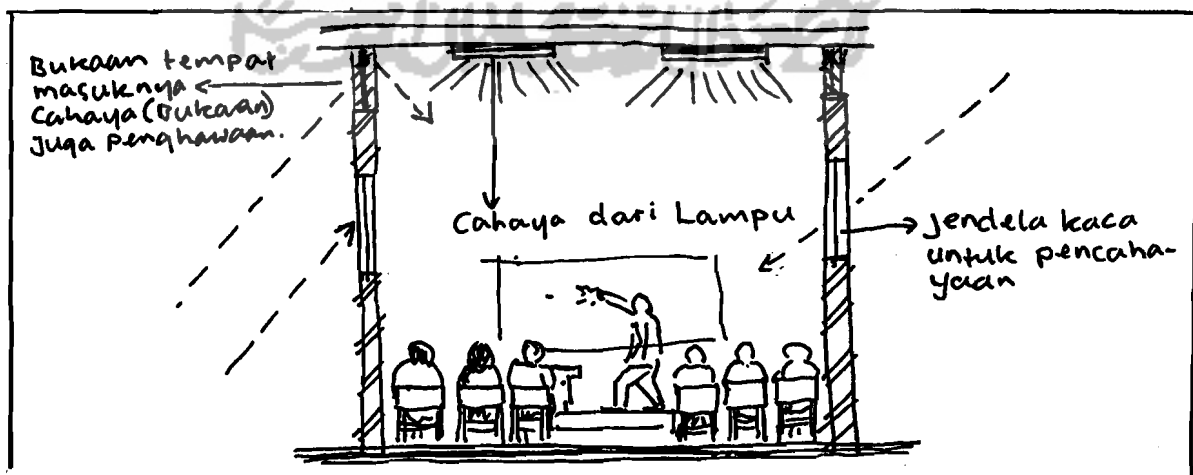 Bukaan tempat
masuknya
Cahaya (Bukaan)
Juga penghawaan.
Cahaya dari Lampu
Jendela kaca
untuk pencaha-
yaan